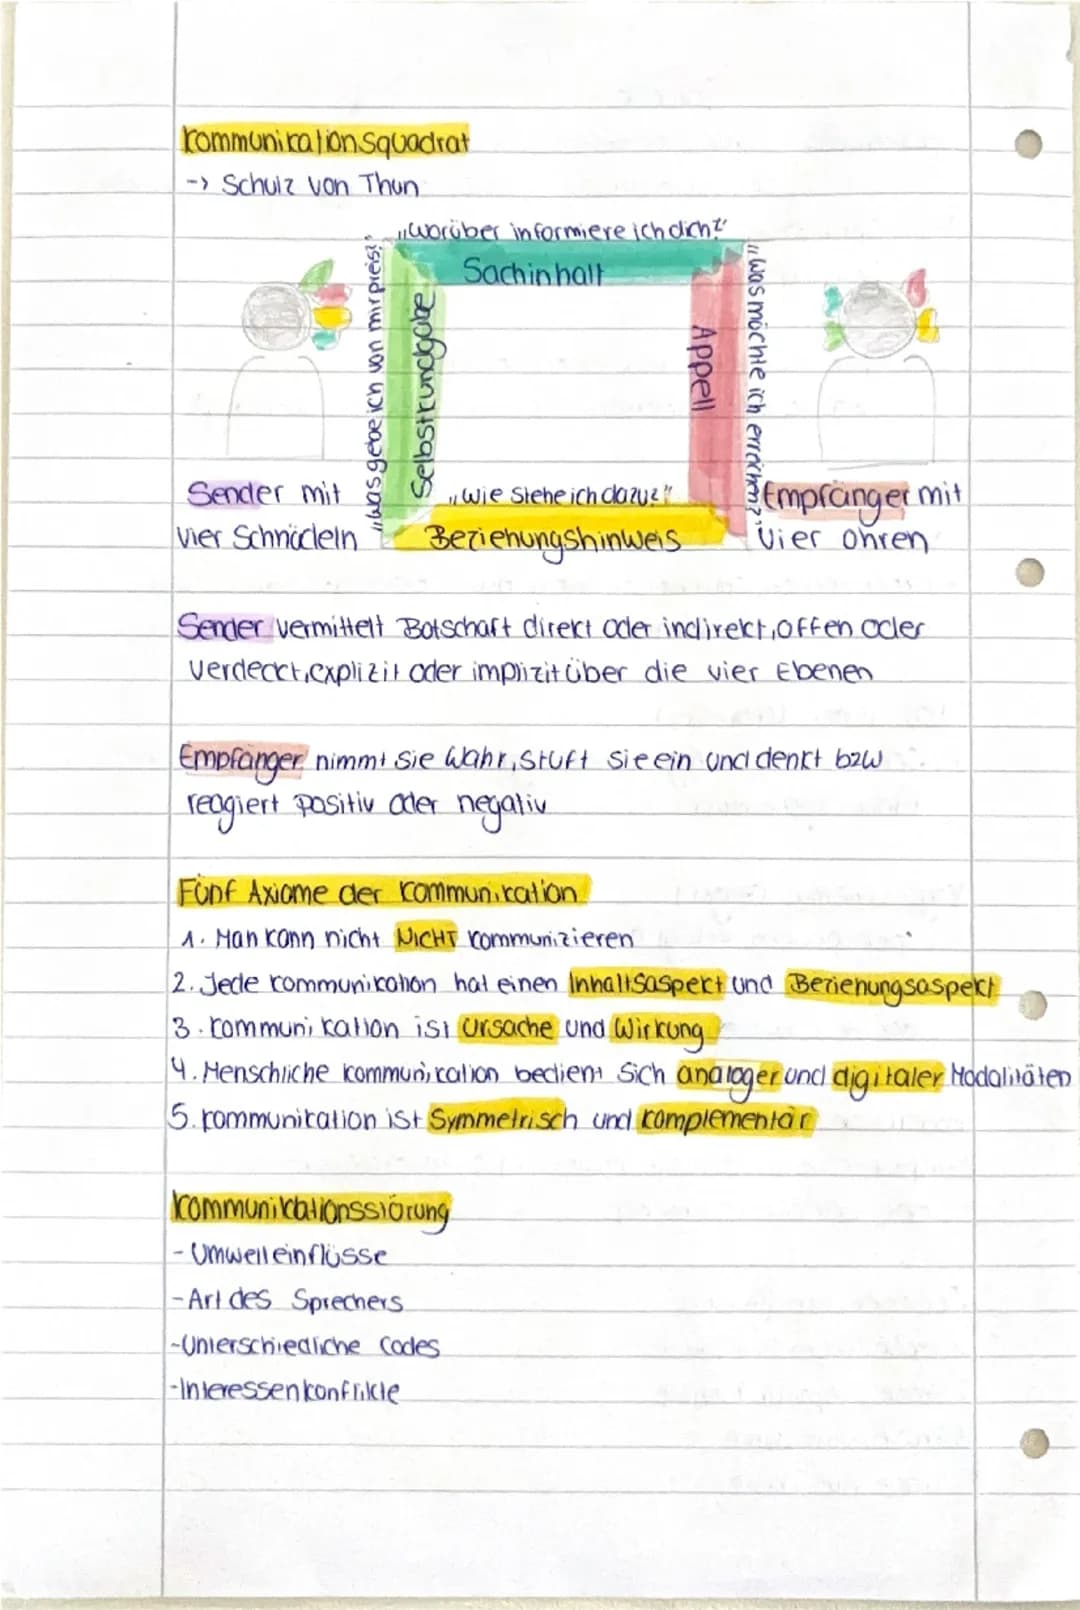 Kommunikationsquadrat
-> Schulz von Thun
„Worüber informiere ich dich?"
Sachinhalt
„Was gebe ich von mir preis?"
Selbstkundgabe
Appell
„Was möchte ich erreichen?"
„Wie stehe ich dazu?"
Beziehungshinweis
Sender mit
vier Schnäbeln
Empfänger mit
Vier Ohren
Sender vermittelt Botschaft direkt oder indirekt, offen oder
verdeckt, explizit oder implizit über die vier Ebenen
Empfänger nimmt sie wahr, stuft sie ein und denkt bzw
reagiert positiv oder negativ
Fünf Axiome der Kommunikation
1. Man kann nicht NICHT kommunizieren
2. Jede Kommunikation hat einen Inhaltsaspekt und Beziehungsaspekt
3. Kommunikation ist Ursache und Wirkung
4. Menschliche Kommunikation bedient sich analoger und digitaler Modalitäten
5. Kommunikation ist Symmetrisch und komplementär
Kommunikationsstörung
- Umwelteinflüsse
- Art des Sprechers
- Unterschiedliche Codes
- Interessenkonfikte